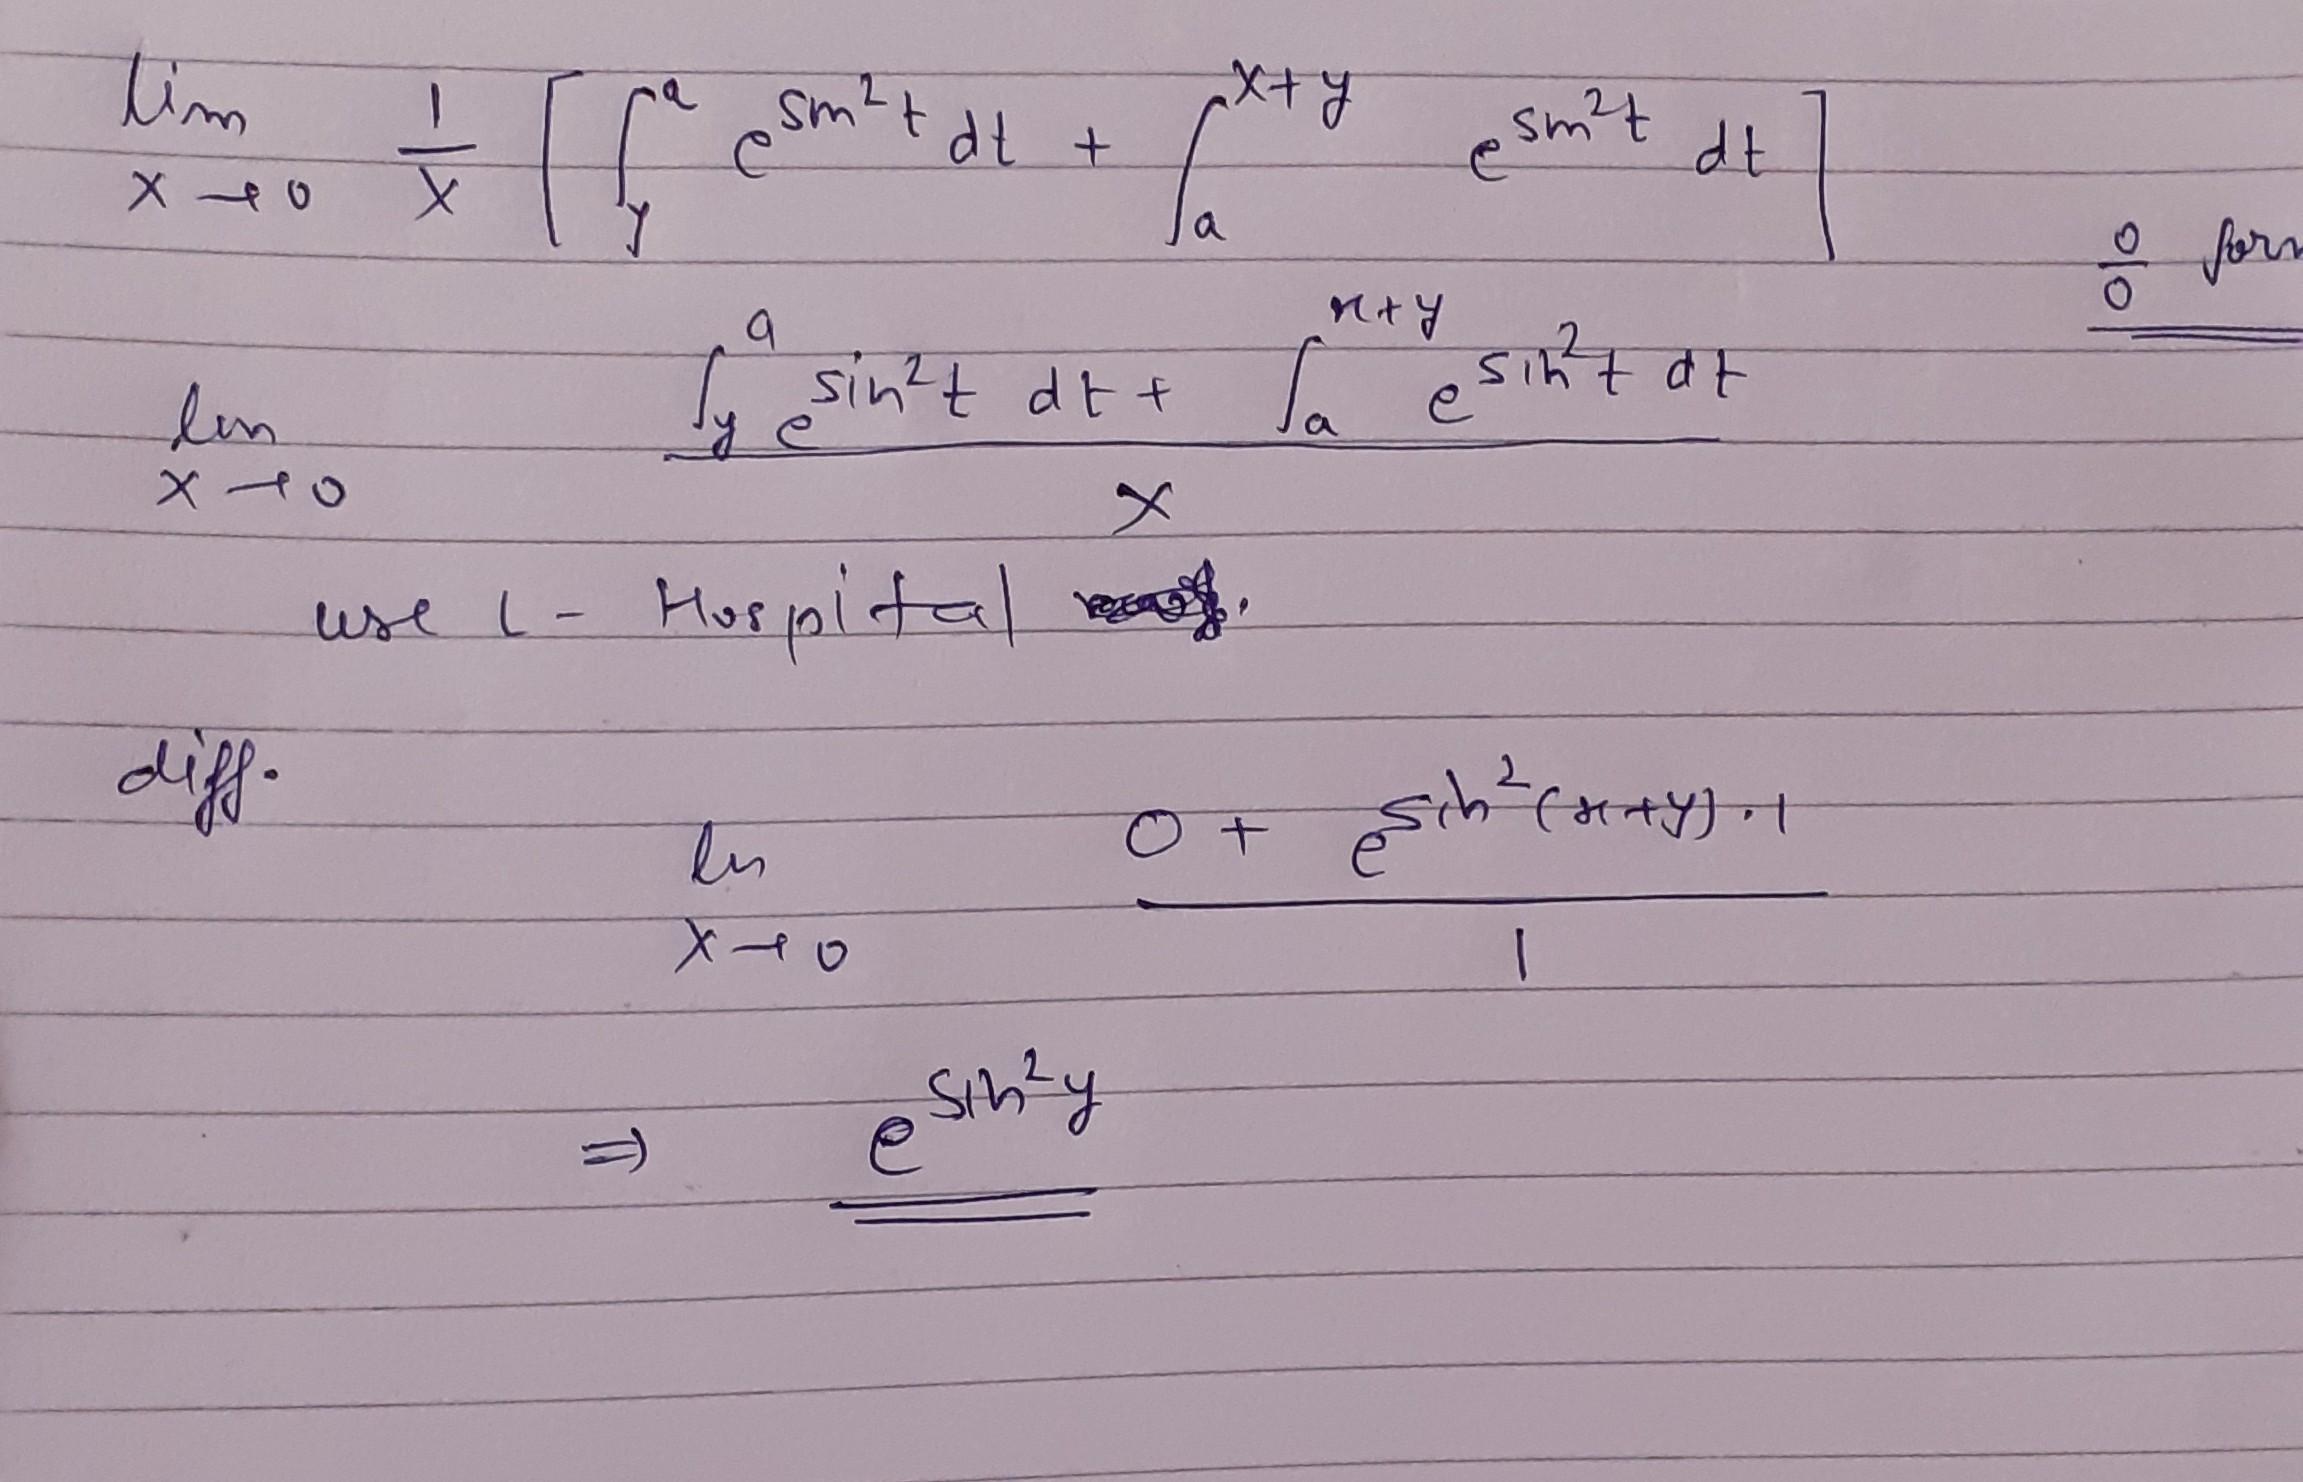 lim x→0 1/x [ ∫_y^a e^{sin²t} dt + ∫_a^{x+y} e^{sin²t} dt ]
0/0 form
lim x→0 (∫_y^a e^{sin²t} dt + ∫_a^{x+y} e^{sin²t} dt) / x
use L - Hospital
diff.
lim x→0 (0 + e^{sin²(x+y)}·1) / 1
⇒ e^{sin²y}